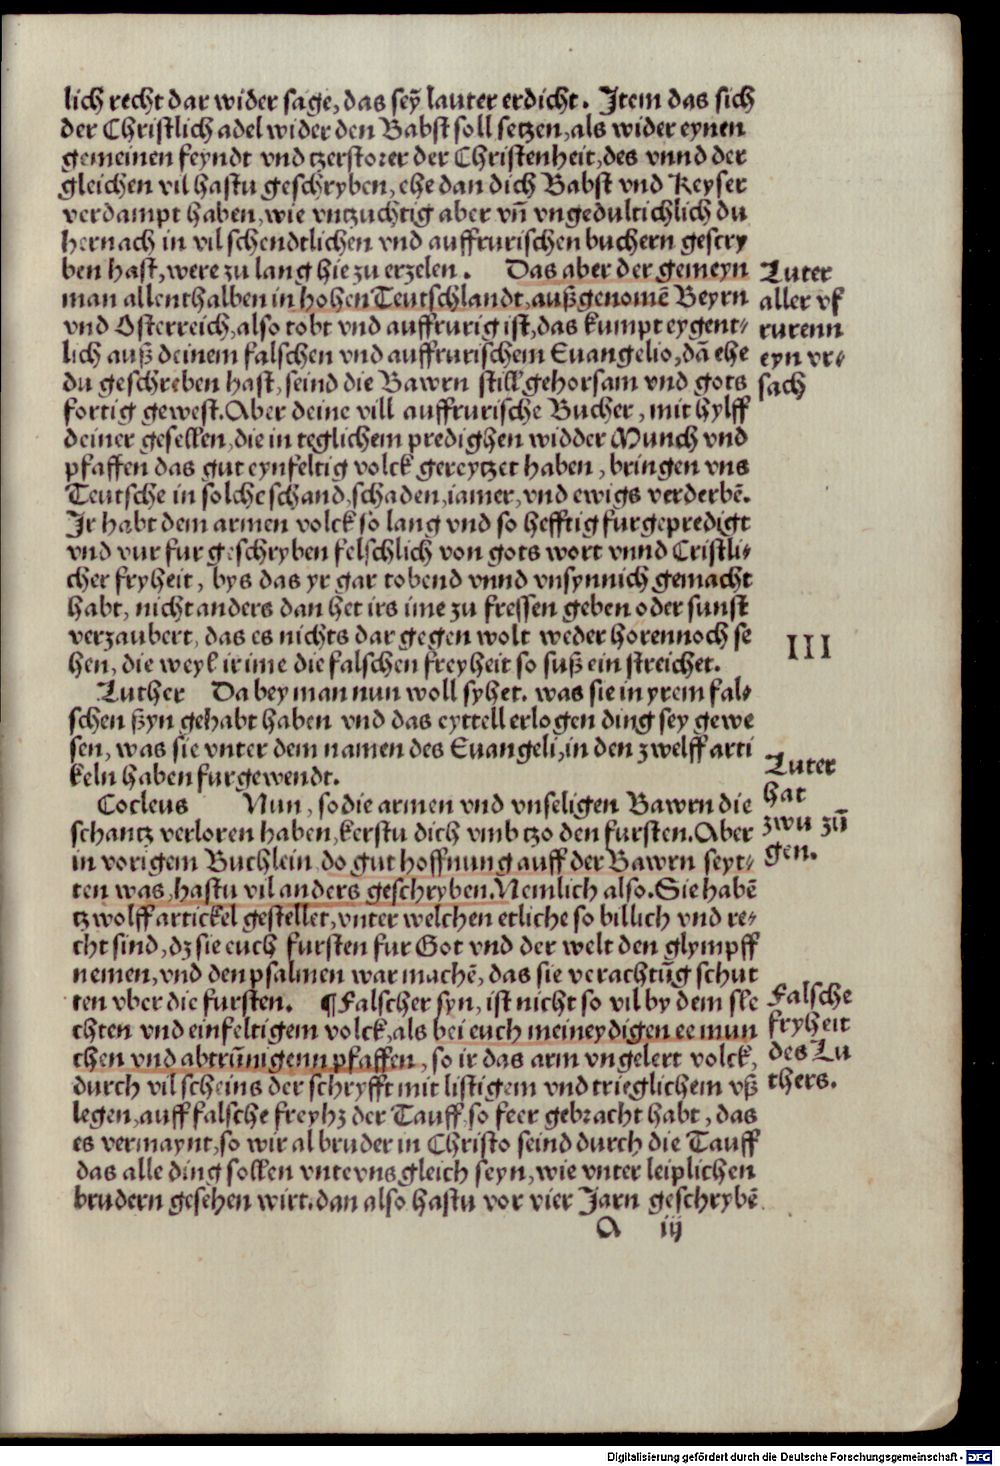 lich recht dar wider sage, das seÿ lauter erdicht. Item das sich
der Christlich adel wider den Babst soll setzen, als wider eynen
gemeinen feyndt vnd tzerstorer der Christenheit, des vnnd der
gleichen vil hastu geschryben, ehe dan dich Babst vnd Keyser
verdampt haben, wie vntzuchtig aber vn̄ vngedultichlich du
hernach in vil schendtlichen vnd auffrurischen buchern gescry
ben hast, were zu lang hie zu erzelen. Das aber der gemeyn
man allenthalben in hohen Teutschlandt, außgenomē Beyrn
vnd Osterreich, also tobt vnd auffrurig ist, das kumpt eygent⸗
lich auß deinem falschen vnd auffrurischem Euangelio, dā ehe
du geschreben hast, seind die Bawrn still gehorsam vnd gots
fortig gewest. Aber deine vill auffrurische Bucher, mit hylff
deiner gesellen, die in teglichem predighen widder Munch vnd
pfaffen das gut eynfeltig volck gereytzet haben, bringen vns
Teutsche in solche schand, schaden, iamer, vnd ewigs verderbē.
Ir habt dem armen volck so lang vnd so hefftig furgepredigt
vnd vur fur geschryben felschlich von gots wort vnnd Cristli⸗
cher fryheit, bys das yr gar tobend vnnd vnsynnich gemacht
habt, nicht anders dan het irs ime zu fressen geben oder sunst
verzaubert, das es nichts dar gegen wolt weder horen noch se
hen, die weyl ir ime die falschen freyheit so suß ein streichet.
Luther Da bey man nun woll syhet. was sie in yrem fal⸗
schen ßyn gehabt haben vnd das eyttell erlogen ding sey gewe
sen, was sie vnter dem namen des Euangeli, in den zwelff arti
keln haben furgewendt.
Cocleus Nun, so die armen vnd vnseligen Bawrn die
schantz verloren haben, kerstu dich vmb tzo den fursten. Aber
in vorigem Buchlein do gut hoffnung auff der Bawrn seyt⸗
ten was, hastu vil anders geschryben. Nemlich also. Sie habē
tzwolff artickel gestellet, vnter welchen etliche so billich vnd re⸗
cht sind, dz sie euch fursten fur Got vnd der welt den glympff
nemen, vnd den psalmen war machē, das sie verachtūg schut
ten vber die fursten. ¶ Falscher syn, ist nicht so vil by dem sle
chten vnd einfeltigem volck, als bei euch meineydigen ee mun
chen vnd abtrūnigenn pfaffen, so ir das arm vngelert volck,
durch vil scheins der schryfft mit listigem vnd trieglichem vß
legen, auff falsche freyhz der Tauff, so feer gebracht habt, das
es vermaynt, so wir al bruder in Christo seind durch die Tauff
das alle ding sollen vnter vns gleich seyn, wie vnter leiplichen
brudern gesehen wirt. dan also hastu vor vier Jarn geschrybē
A iij
Luter
aller vf
rurenn
eyn vr⸗
sach
III
Luter
hat
zwu zū
gen.
Falsche
fryheit
des Lu
thers.
Digitalisierung gefördert durch die Deutsche Forschungsgemeinschaft - DFG